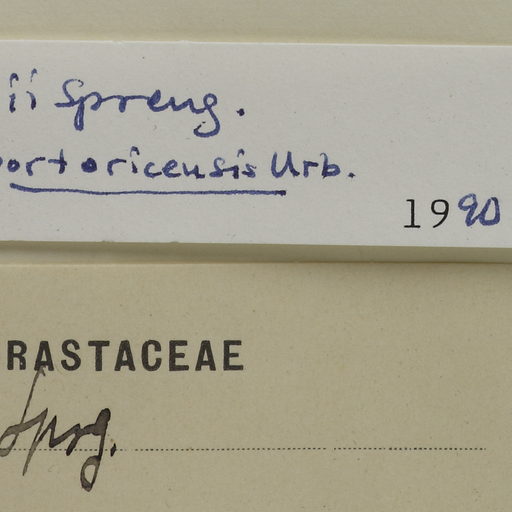 ii Spreng.
portoricensis Urb.
1990
RASTACEAE
Sprg.